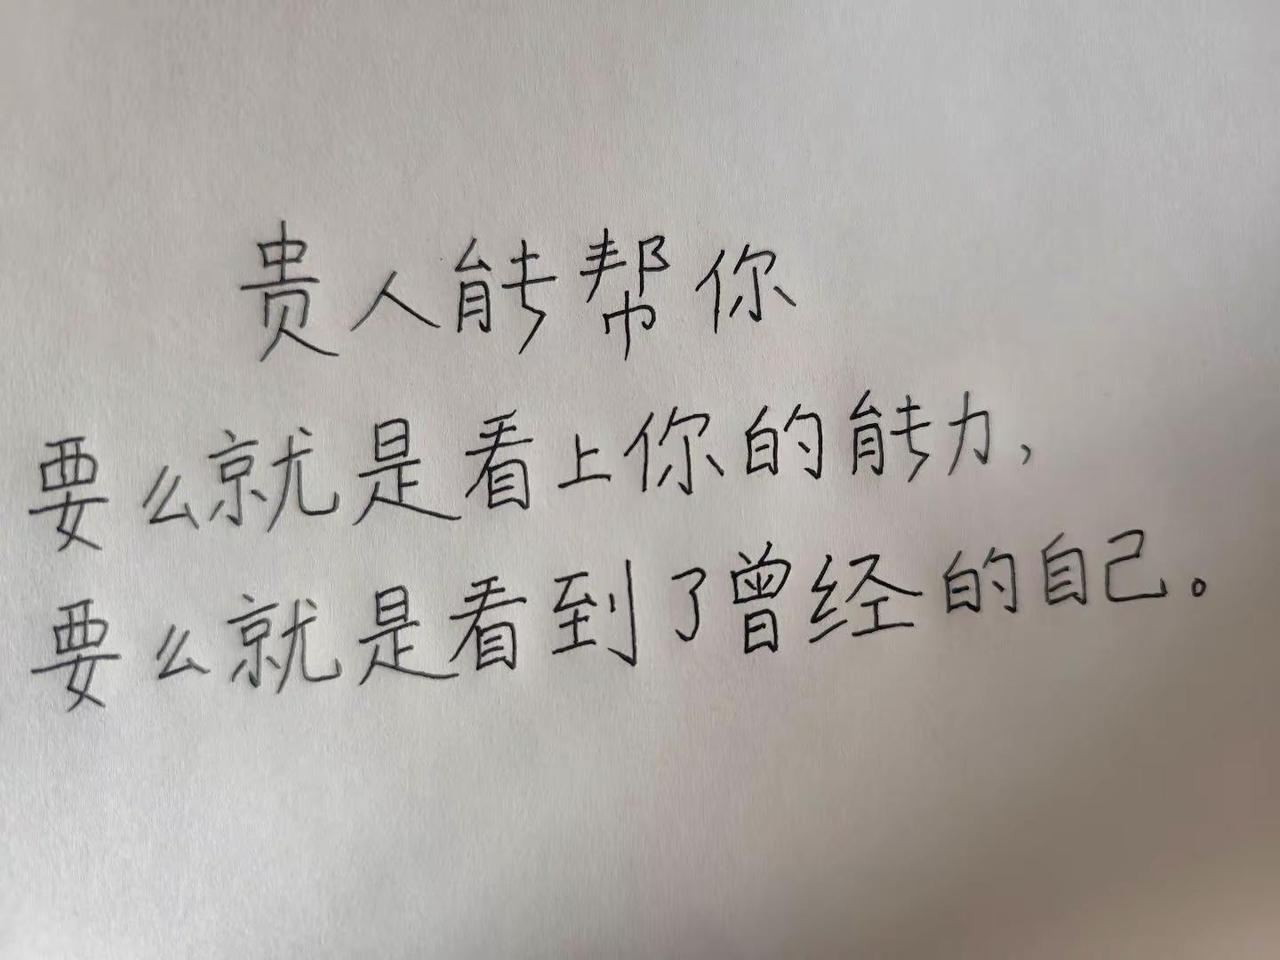 贵人能帮你
要么就是看上你的能力,
要么就是看到了曾经的自己。